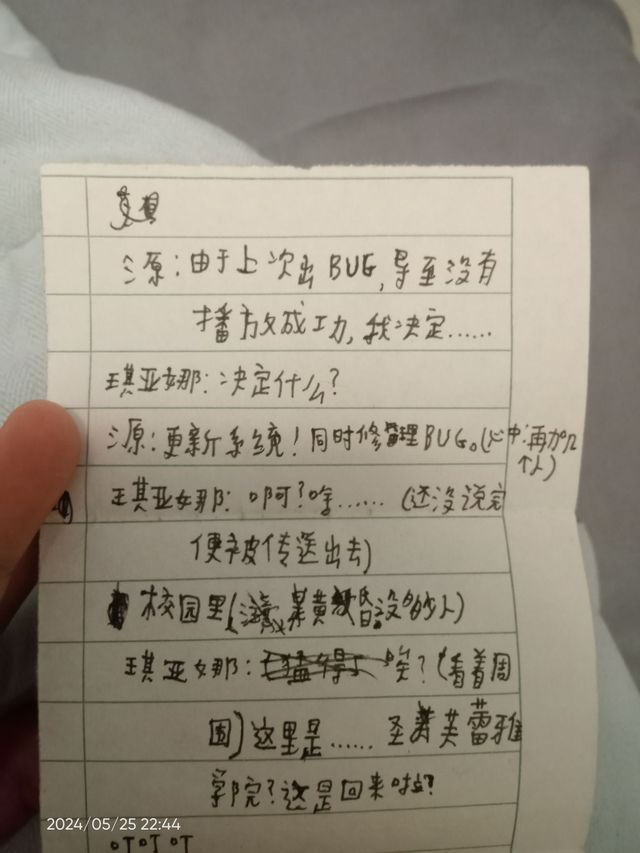 源：由于上次出BUG，导至没有
播放成功，我决定……
琪亚娜：决定什么？
源：更新系统！同时修理BUG。(心中：再加几
个人)
琪亚娜：啊？啥……（还没说完
便被传送出去)
校园里(黄昏没多少人)
琪亚娜：唉？(看着周
围)这里是……圣芙蕾雅
学院？这是回来啦？
2024/05/25 22:44